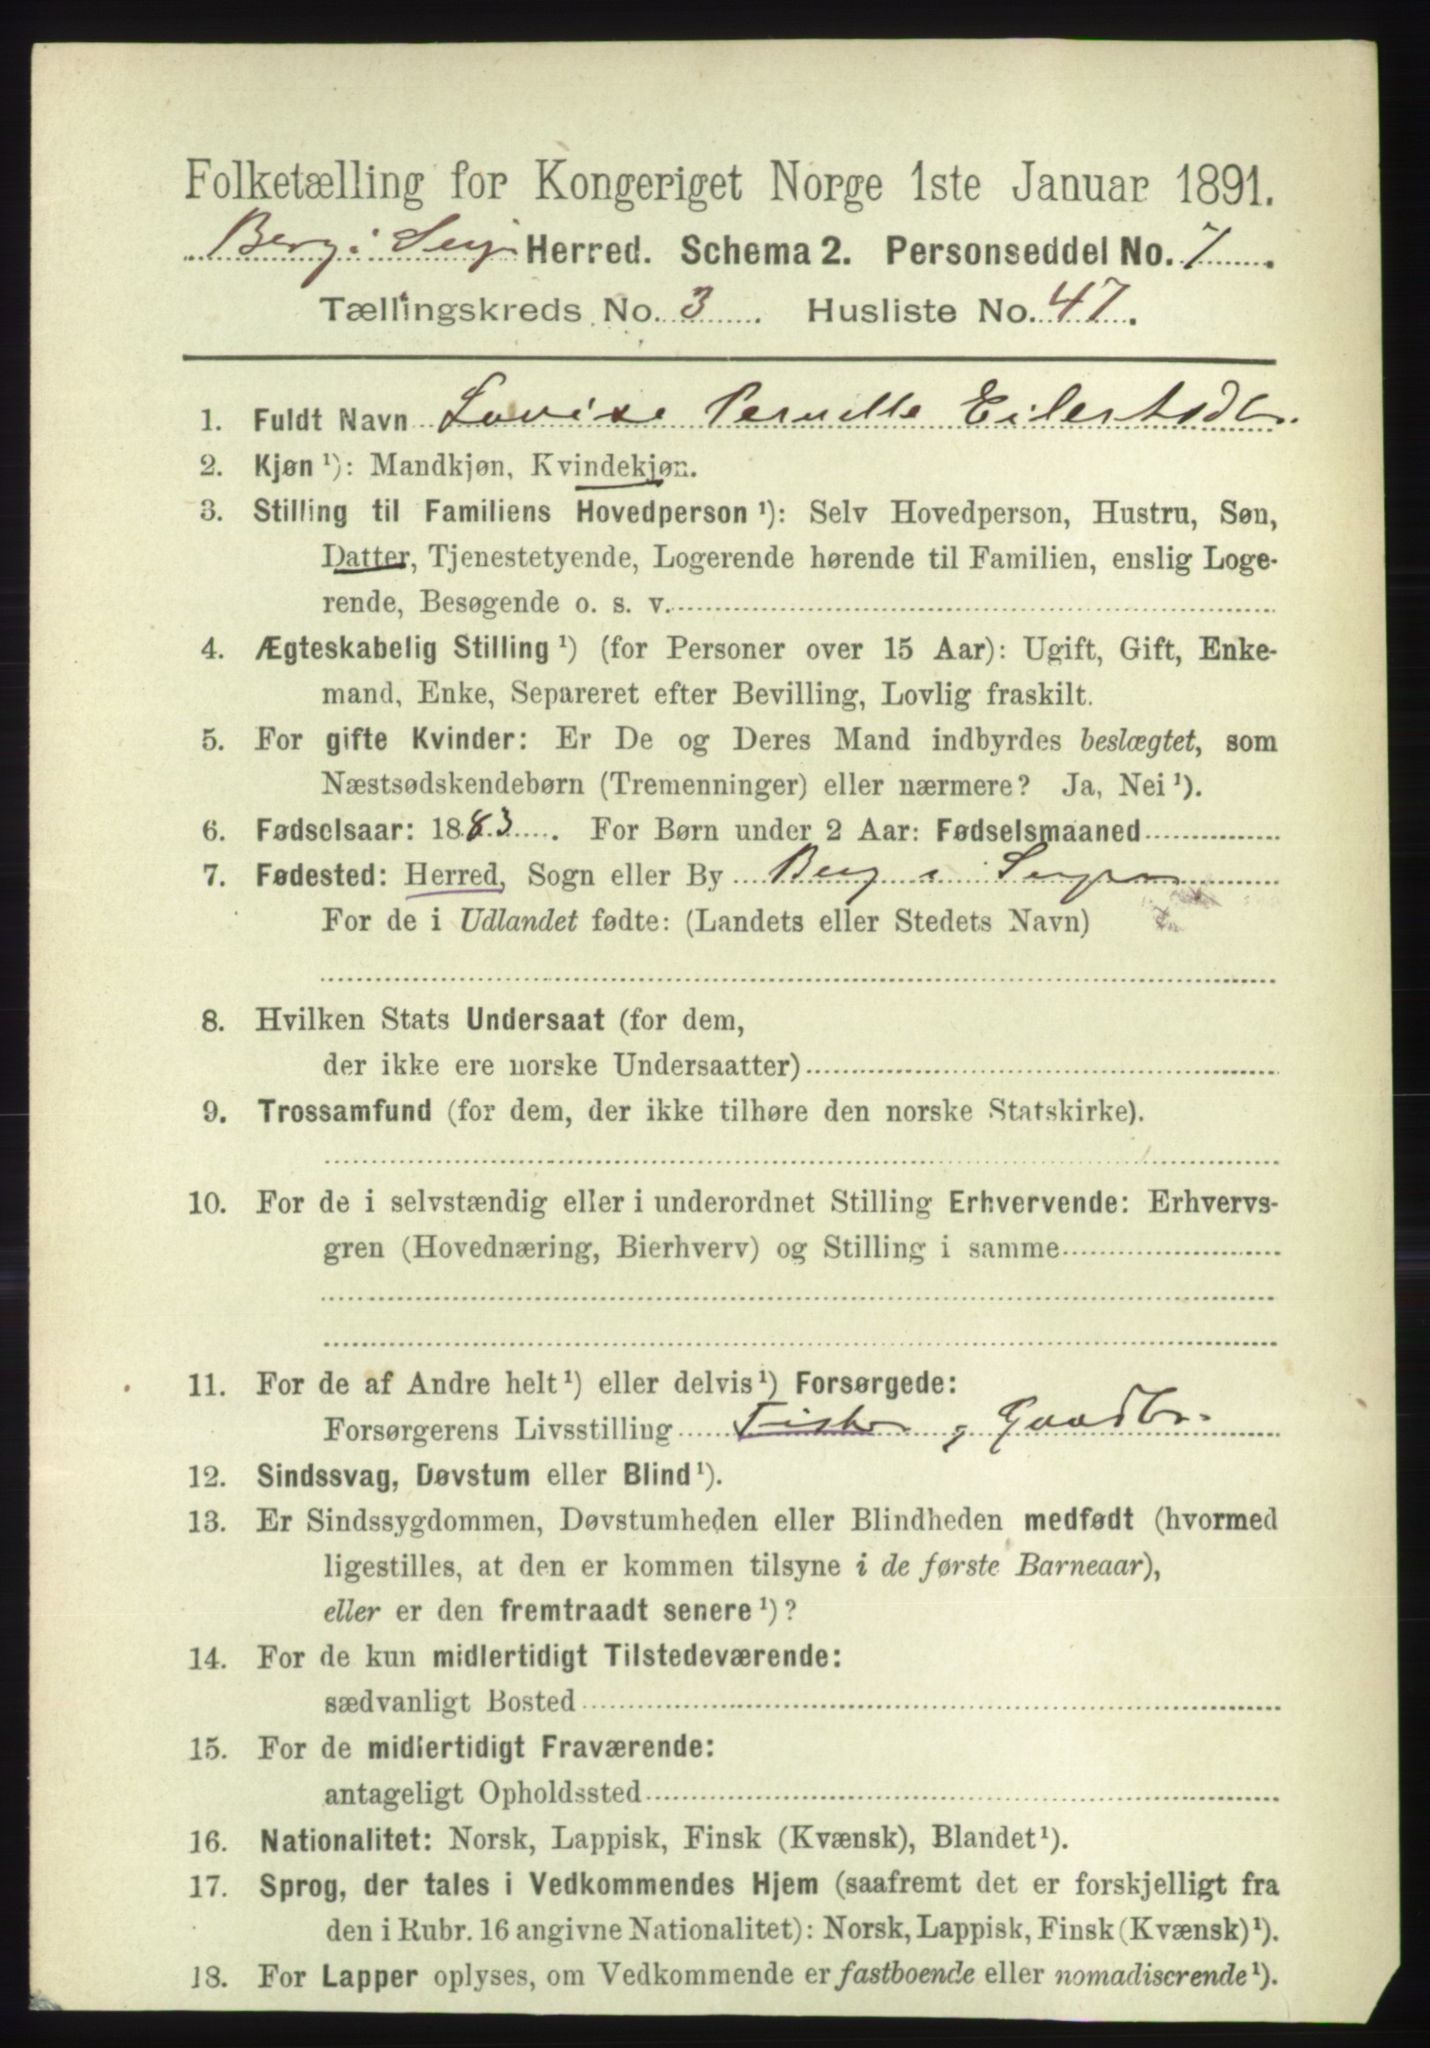 Folketælling for Kongeriget Norge 1ste Januar 1891.
Berg i Senj Herred. Schema 2. Personseddel No. 7.
Tællingskreds No. 3. Husliste No. 47.
1. Fuldt Navn Lovise Pernille Eilertsdtr.
2. Kjøn ¹): Mandkjøn, Kvindekjøn.
3. Stilling til Familiens Hovedperson ¹): Selv Hovedperson, Hustru, Søn,
Datter, Tjenestetyende, Logerende hørende til Familien, enslig Loge-
rende, Besøgende o. s. v.
4. Ægteskabelig Stilling ¹) (for Personer over 15 Aar): Ugift, Gift, Enke-
mand, Enke, Separeret efter Bevilling, Lovlig fraskilt.
5. For gifte Kvinder: Er De og Deres Mand indbyrdes beslægtet, som
Næstsødskendebørn (Tremenninger) eller nærmere? Ja, Nei ¹).
6. Fødselsaar: 1883. For Børn under 2 Aar: Fødselsmaaned
7. Fødested: Herred, Sogn eller By Berg i Senjen
For de i Udlandet fødte: (Landets eller Stedets Navn)
8. Hvilken Stats Undersaat (for dem,
der ikke ere norske Undersaatter)
9. Trossamfund (for dem, der ikke tilhøre den norske Statskirke).
10. For de i selvstændig eller i underordnet Stilling Erhvervende: Erhvervs-
gren (Hovednæring, Bierhverv) og Stilling i samme
11. For de af Andre helt ¹) eller delvis ¹) Forsørgede:
Forsørgerens Livsstilling Fisker, Gaardbr.
12. Sindssvag, Døvstum eller Blind ¹).
13. Er Sindssygdommen, Døvstumheden eller Blindheden medfødt (hvormed
ligestilles, at den er kommen tilsyne i de første Barneaar),
eller er den fremtraadt senere ¹)?
14. For de kun midlertidigt Tilstedeværende:
sædvanligt Bosted
15. For de midlertidigt Fraværende:
antageligt Opholdssted
16. Nationalitet: Norsk, Lappisk, Finsk (Kvænsk), Blandet ¹).
17. Sprog, der tales i Vedkommendes Hjem (saafremt det er forskjelligt fra
den i Rubr. 16 angivne Nationalitet): Norsk, Lappisk, Finsk (Kvænsk) ¹).
18. For Lapper oplyses, om Vedkommende er fastboende eller nomadiserende ¹).